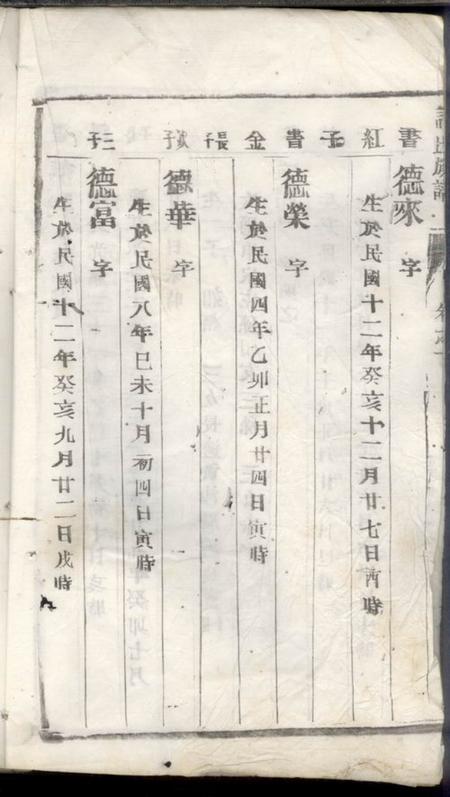 書紅子 德來 字
生於民國十二年癸亥十二月廿七日酉時
書金長子 德榮 字
生於民國四年乙卯正月廿四日寅時
次子 德華 字
生於民國八年己未十月初四日寅時
三子 德富 字
生於民國十二年癸亥九月廿二日戌時